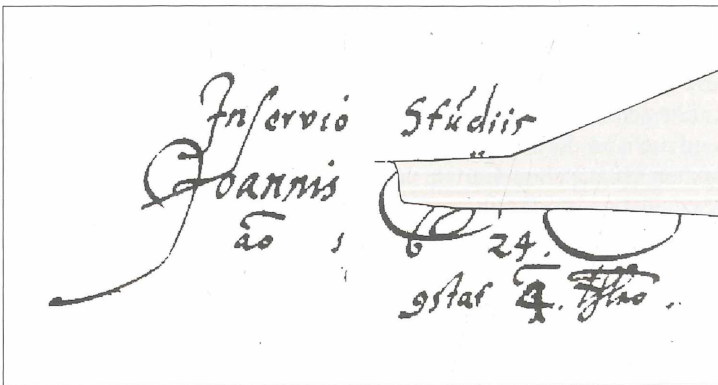 Inservio Studiis
Joannis
ao 1624.
9stat 4.